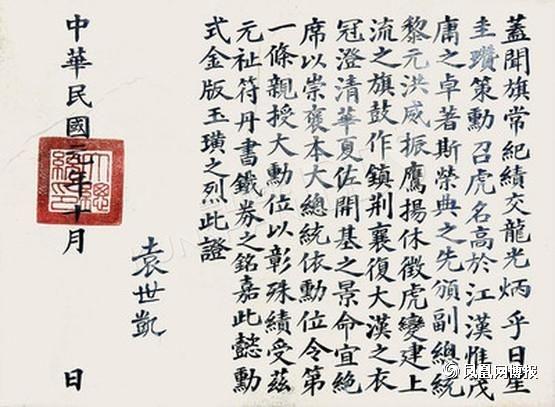 蓋聞旗常紀績交龍光炳乎日星
圭瓚策勳召虎名高於江漢惟茂
庸之卓著斯榮典之先頒副總統
黎元洪威振鷹揚休徵虎變建上
流之旗鼓作鎮荊襄復大漢之衣
冠澄清華夏佐開基之景命宜絕
席以崇褒本大總統依勳位令第
一條親授大勳位以彰殊績受茲
元祉符丹書鐵券之銘嘉此懿勳
式金版玉璜之烈此證
袁世凱
中華民國元年十月 日
大總統印
凤凰网博报